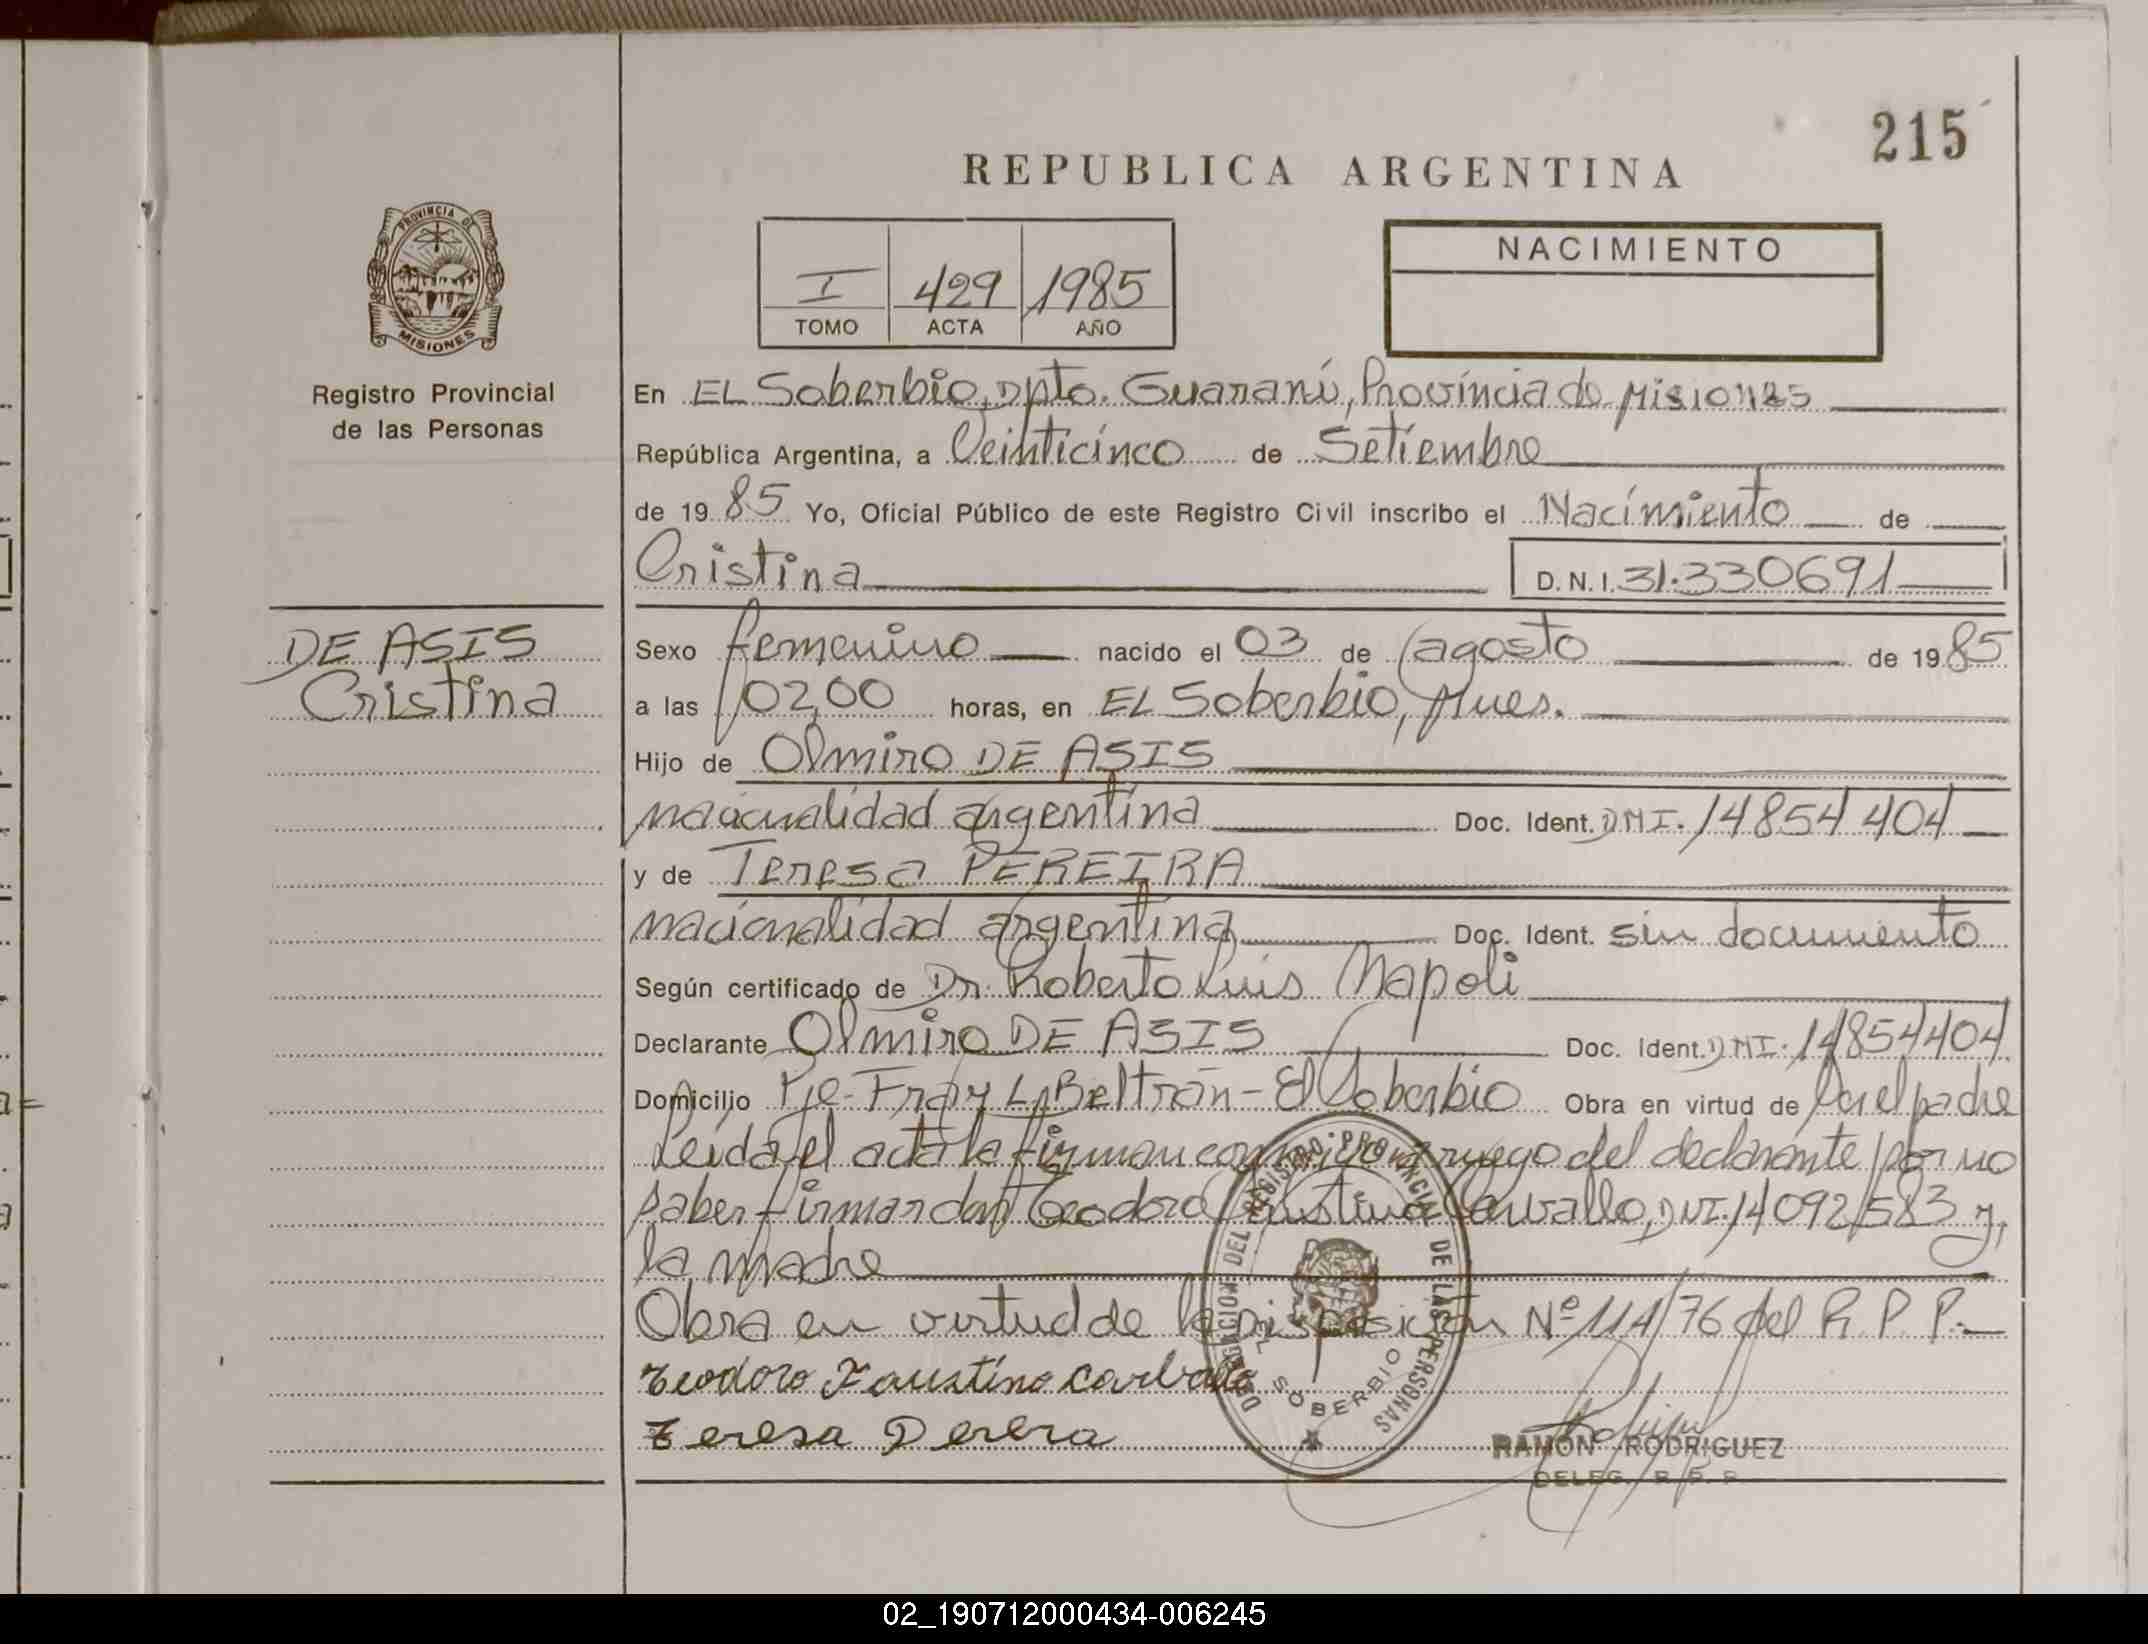 215
REPUBLICA ARGENTINA
PROVINCIA DE
MISIONES
Registro Provincial
de las Personas
NACIMIENTO
I 429 1985
TOMO ACTA AÑO
En EL Soberbio, Dpto. Guaraní, Provincia de Misiones
República Argentina, a Veinticinco de Setiembre
de 19 85 Yo, Oficial Público de este Registro Civil inscribo el Nacimiento de
Cristina D.N.I. 31.330691
DE ASIS
Cristina
Sexo femenino nacido el 03 de agosto de 19 85
a las 02,00 horas, en EL Soberbio, Mnes.
Hijo de Olmiro DE ASIS
nacionalidad argentina Doc. Ident. DNI. 14854404
y de Teresa PEREIRA
nacionalidad argentina Doc. Ident. sin documento
Según certificado de Dr. Roberto Luis Napoli
Declarante Olmiro DE ASIS Doc. Ident. DNI. 14854404
Domicilio Pje. Fray L. Beltrán - El Soberbio Obra en virtud de Ser el padre
Leida el acta la firman conmigo a ruego del declarante por no
saber firmar don Teodoro Faustino Carvallo, DNI. 14092583 y,
la madre
Obra en virtud de la Disposición Nº 114/76 del R. P. P.
Teodoro Faustino Carballo
Teresa Perera
DELEGACION DEL REGISTRO PROVINCIAL DE LAS PERSONAS
EL SOBERBIO
RAMON RODRIGUEZ
DELEG. R. P. P.
02_190712000434-006245